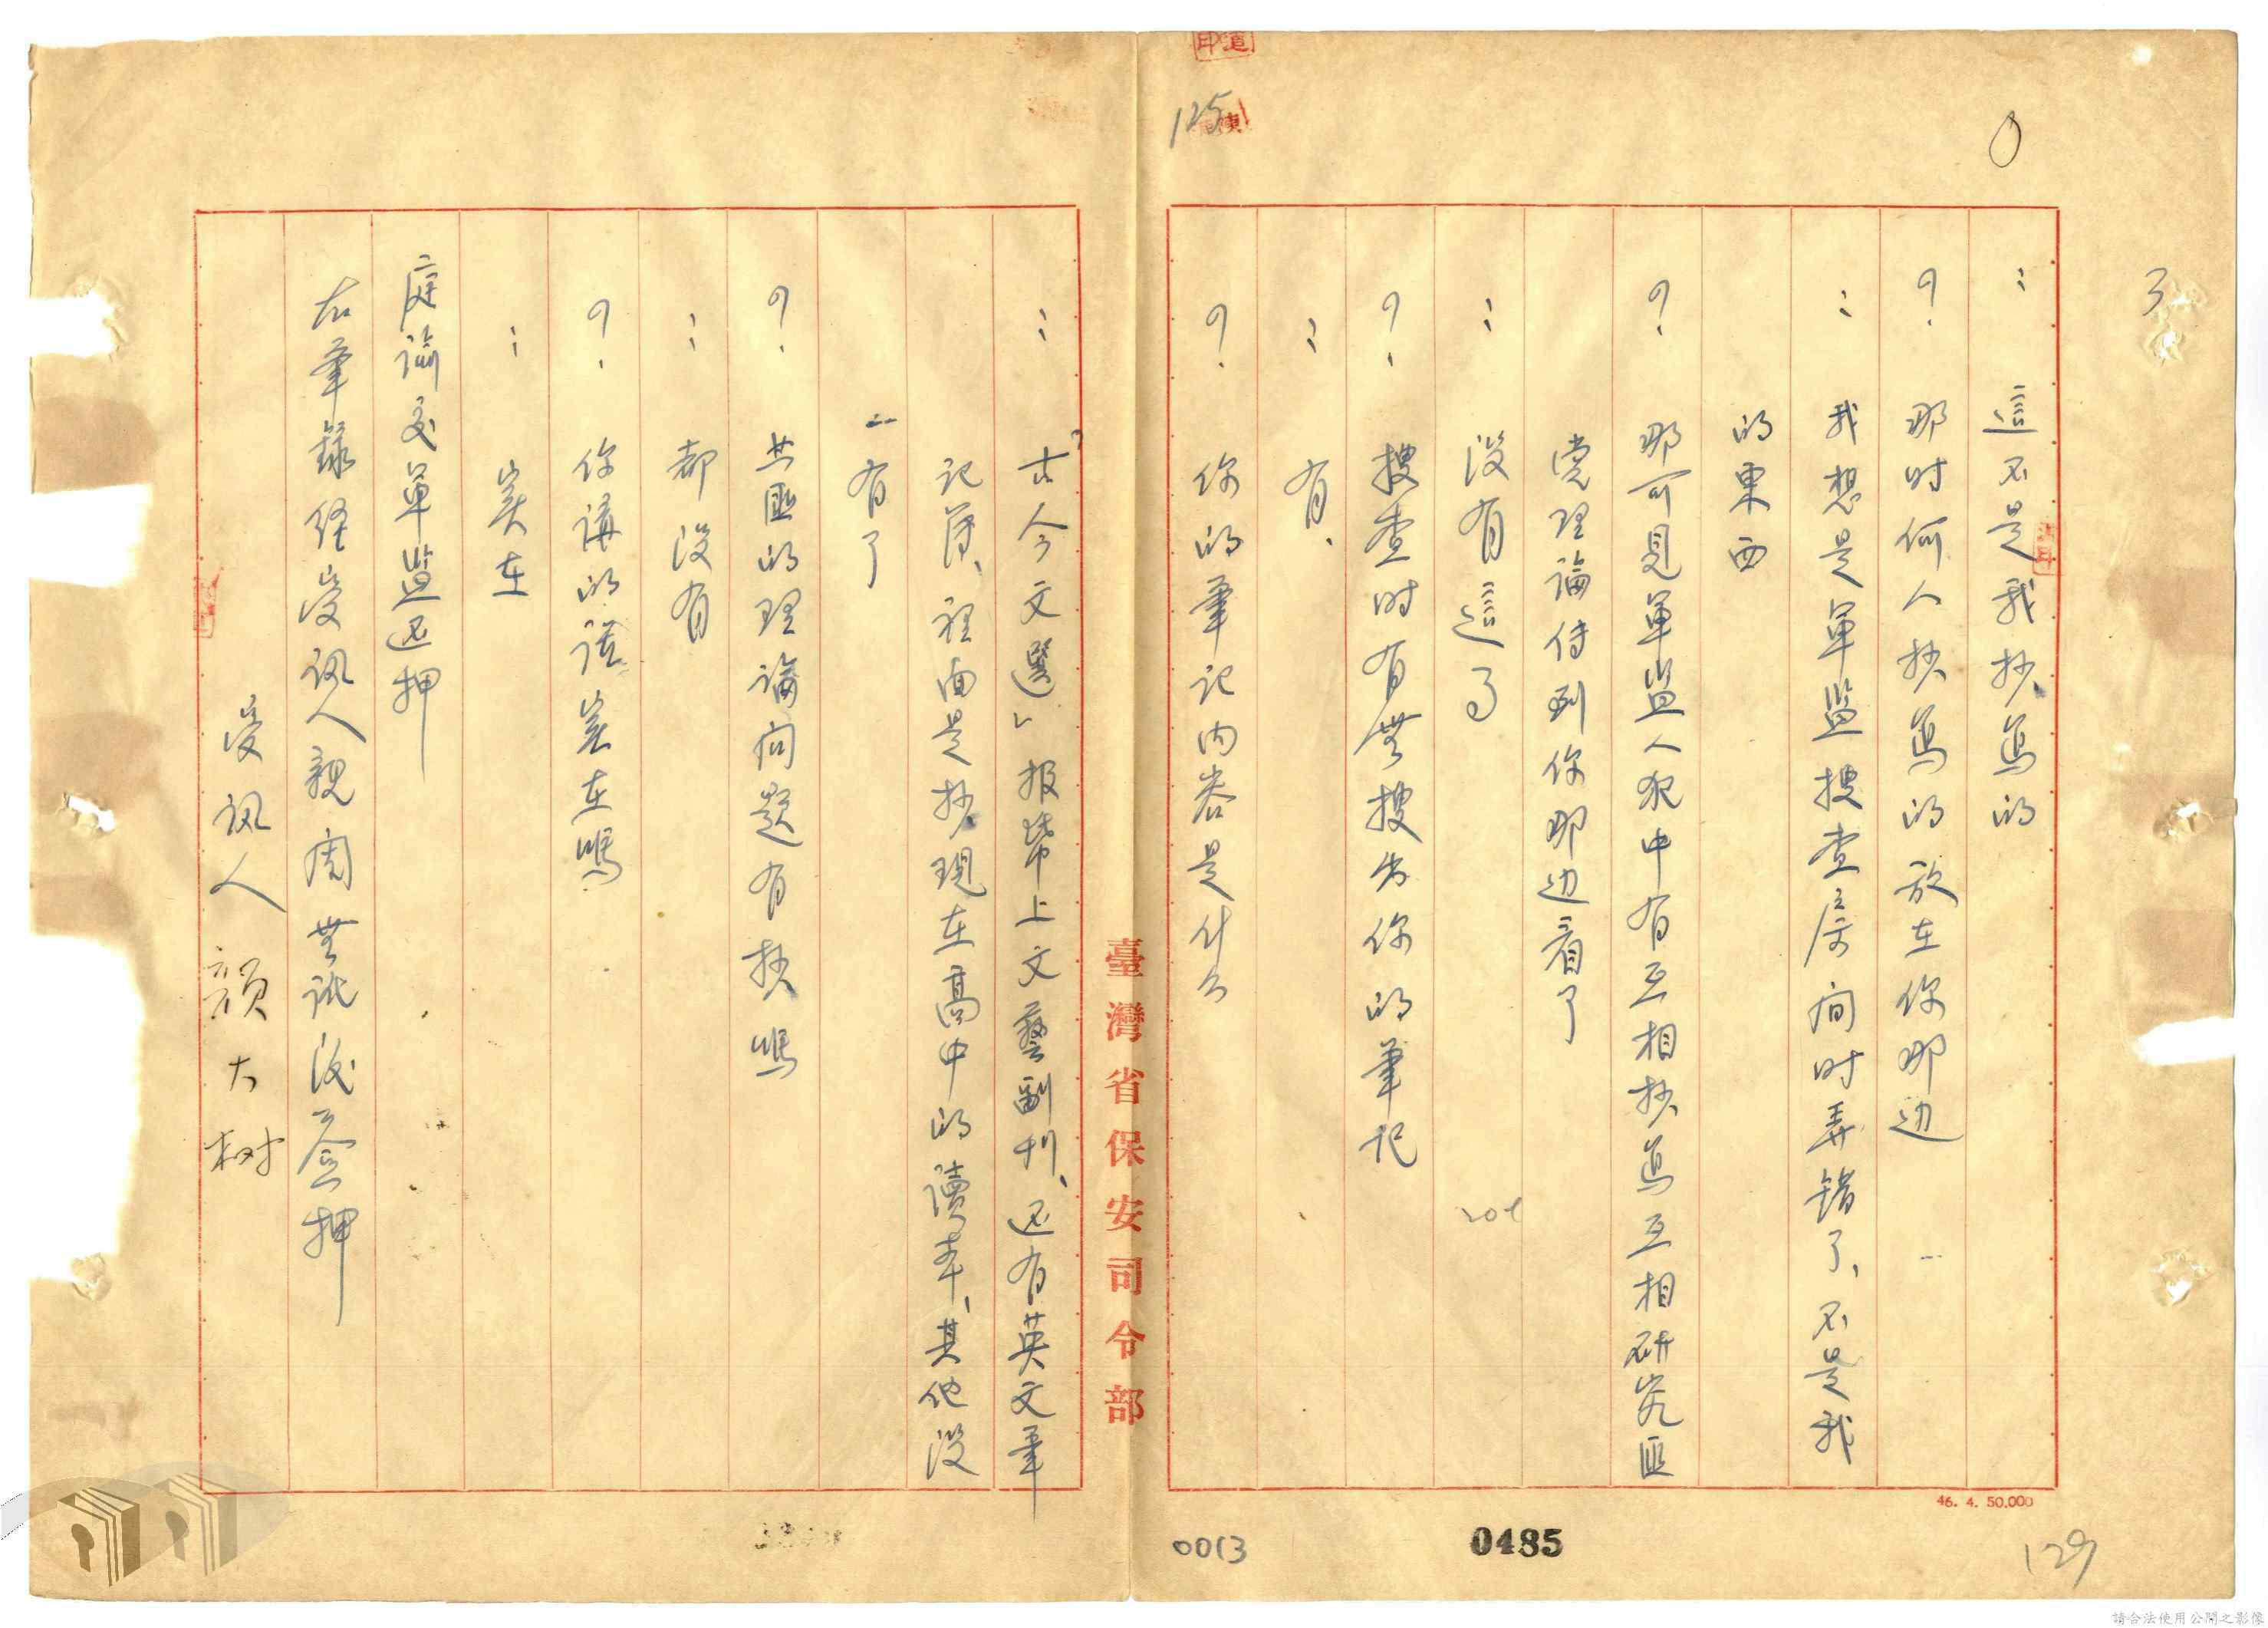 3
：這不是我抄寫的
？那时何人抄寫的放在你那边
：我想是軍监搜查房间时弄错了、不是我
的東西
？那可見軍监人犯中有互相抄寫互相研究匪
党理論传到你那边看了
：没有這了
？搜查时有無搜出你的筆记
：有、
？你的筆记内容是什么
125
臺灣省保安司令部
：「古今文選」报紙上文藝副刊、还有英文筆
记簿、裡面是抄現在高中的讀本、其他没
有了
？共匪的理論问题有抄嗎
：都没有
？你講的话实在嗎
：实在
庭諭交軍监还押
右筆録经受訊人親閱無訛後签押
受訊人 顏大树
46. 4. 50.000
0013
0485
129
請合法使用公開之影像